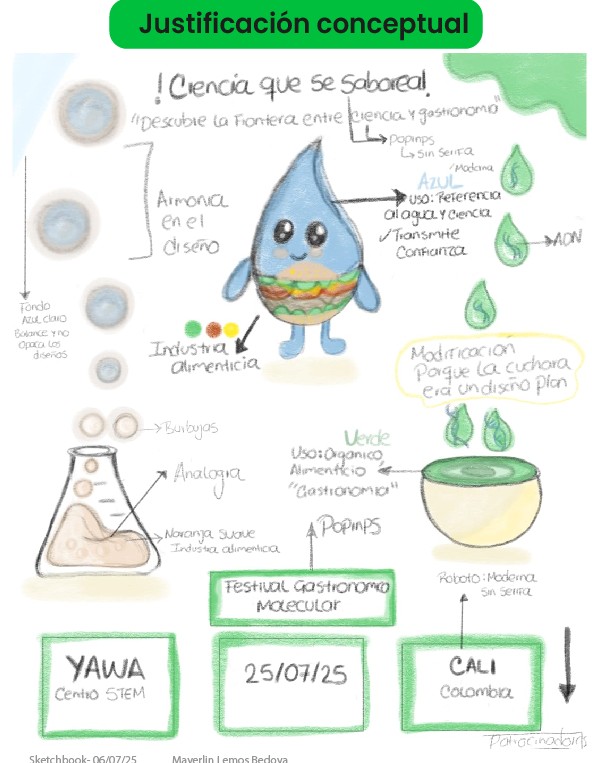 Justificación conceptual
! Ciencia que se saborea!
"Descubre la Frontera entre ciencia y gastronomia"
Popinps
Sin Serifa
Moderna
AZUL
Uso: Referencia
al agua y ciencia
✓ Transmite
Confianza
ADN
Armonia
en el
diseño
Fondo
Azul claro
Balance y no
Opaca los
diseños
Industria
alimenticia
Modificacion
Porque la cuchara
era un diseño plan
Burbujas
Analogia
Naranja Suave
Industria alimenticia
Verde
Uso: Organico
Alimenticio
"Gastronomia"
Popinps
Roboto: Moderna
Sin Serifa
Festival Gastronomico
Molecular
YAWA
Centro STEM
25/07/25
CALI
Colombia
Patrocinadores
Sketchbook- 06/07/25
Mayerlin Lemos Bedoya